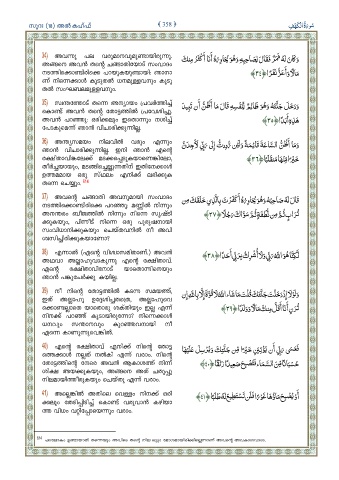 സൂറ (18) അൽ കഹ്ഫ്
{ 358 }
سُورَةُ الكَهْفِ
34) അവന്നു പല വരുമാനവുമുണ്ടായിരുന്നു.
അങ്ങനെ അവൻ തന്റെ ചങ്ങാതിയോട് സംവാദം
നടത്തിക്കൊണ്ടിരിക്കെ പറയുകയുണ്ടായി: ഞാനാ
ണ് നിന്നെക്കാൾ കൂടുതൽ ധനമുള്ളവനും കൂടു
തൽ സംഘബലമുള്ളവനും.
وَكَانَ لَهُ ثَمَرٌ فَقَالَ لِصَاحِبِهِ وَهُوَ يُحَاوِرُهُ أَنَا أَكْثَرُ مِنكَ
مَالًا وَأَعَزُّ نَفَرًا ﴿٣٤﴾
35) സ്വന്തത്തോട് തന്നെ അന്യായം പ്രവർത്തിച്ച്
കൊണ്ട് അവൻ തന്റെ തോട്ടത്തിൽ പ്രവേശിച്ചു.
അവൻ പറഞ്ഞു: ഒരിക്കലും ഇതൊന്നും നശിച്ച്
പോകുമെന്ന് ഞാൻ വിചാരിക്കുന്നില്ല.
وَدَخَلَ جَنَّتَهُ وَهُوَ ظَالِمٌ لِّنَفْسِهِ قَالَ مَا أَظُنُّ أَن تَبِيدَ
هَٰذِهِ أَبَدًا ﴿٣٥﴾
36) അന്ത്യസമയം നിലവിൽ വരും എന്നും
ഞാൻ വിചാരിക്കുന്നില്ല. ഇനി ഞാൻ എന്റെ
രക്ഷിതാവിങ്കലേക്ക് മടക്കപ്പെടുകയാണെങ്കിലോ,
തീർച്ചയായും, മടങ്ങിച്ചെല്ലുന്നതിന് ഇതിനേക്കാൾ
ഉത്തമമായ ഒരു സ്ഥലം എനിക്ക് ലഭിക്കുക
തന്നെ ചെയ്യും.
وَمَا أَظُنُّ السَّاعَةَ قَائِمَةً وَلَئِن رُّدِدتُّ إِلَىٰ رَبِّي لَأَجِدَنَّ
خَيْرًا مِّنْهَا مُنقَلَبًا ﴿٣٦﴾
37) അവന്റെ ചങ്ങാതി അവനുമായി സംവാദം
നടത്തിക്കൊണ്ടിരിക്കെ പറഞ്ഞു: മണ്ണിൽ നിന്നും
അനന്തരം ബീജത്തിൽ നിന്നും നിന്നെ സൃഷ്ടി
ക്കുകയും, പിന്നീട് നിന്നെ ഒരു പുരുഷനായി
സംവിധാനിക്കുകയും ചെയ്തവനിൽ നീ അവി
ശ്വസിച്ചിരിക്കുകയാണോ?
قَالَ لَهُ صَاحِبُهُ وَهُوَ يُحَاوِرُهُ أَكَفَرْتَ بِالَّذِي خَلَقَكَ مِن
تُرَابٍ ثُمَّ مِن نُّطْفَةٍ ثُمَّ سَوَّاكَ رَجُلًا ﴿٣٧﴾
38) എന്നാൽ (എന്റെ വിശ്വാസമിതാണ്.) അവൻ
അഥവാ അല്ലാഹുവാകുന്നു എന്റെ രക്ഷിതാവ്.
എന്റെ രക്ഷിതാവിനോട് യാതൊന്നിനെയും
ഞാൻ പങ്കുചേർക്കു കയില്ല.
لَّٰكِنَّا هُوَ اللَّهُ رَبِّي وَلَا أُشْرِكُ بِرَبِّي أَحَدًا ﴿٣٨﴾
39) നീ നിന്റെ തോട്ടത്തിൽ കടന്ന സമയത്ത്,
ഇത് അല്ലാഹു ഉദ്ദേശിച്ചതത്രെ, അല്ലാഹുവെ
ക്കൊണ്ടല്ലാതെ യാതൊരു ശക്തിയും ഇല്ല എന്ന്
നിനക്ക് പറഞ്ഞ് കൂടായിരുന്നോ? നിന്നെക്കാൾ
ധനവും സന്താനവും കുറഞ്ഞവനായി നീ
എന്നെ കാണുന്നുവെങ്കിൽ.
وَلَوْلَا إِذْ دَخَلْتَ جَنَّتَكَ قُلْتَ مَا شَاءَ اللَّهُ لَا قُوَّةَ إِلَّا بِاللَّهِ إِن
تَرَنِ أَنَا أَقَلَّ مِنكَ مَالًا وَوَلَدًا ﴿٣٩﴾
40) എന്റെ രക്ഷിതാവ് എനിക്ക് നിന്റെ തോട്ട
ത്തേക്കാൾ നല്ലത് നൽകി എന്ന് വരാം. നിന്റെ
തോട്ടത്തിന്റെ നേരെ അവൻ ആകാശത്ത് നിന്ന്
ശിക്ഷ അയക്കുകയും, അങ്ങനെ അത് ചതുപ്പു
നിലമായിത്തീരുകയും ചെയ്തു എന്ന് വരാം.
فَعَسَىٰ رَبِّي أَن يُؤْتِيَنِ خَيْرًا مِّن جَنَّتِكَ وَيُرْسِلَ عَلَيْهَا
حُسْبَانًا مِّنَ السَّمَاءِ فَتُصْبِحَ صَعِيدًا زَلَقًا ﴿٤٠﴾
41) അല്ലെങ്കിൽ അതിലെ വെള്ളം നിനക്ക് ഒരി
ക്കലും തേടിപ്പിടിച്ച് കൊണ്ട് വരുവാൻ കഴിയാ
ത്ത വിധം വറ്റിപ്പോയെന്നും വരാം.
أَوْ يُصْبِحَ مَاؤُهَا غَوْرًا فَلَن تَسْتَطِيعَ لَهُ طَلَبًا ﴿٤١﴾